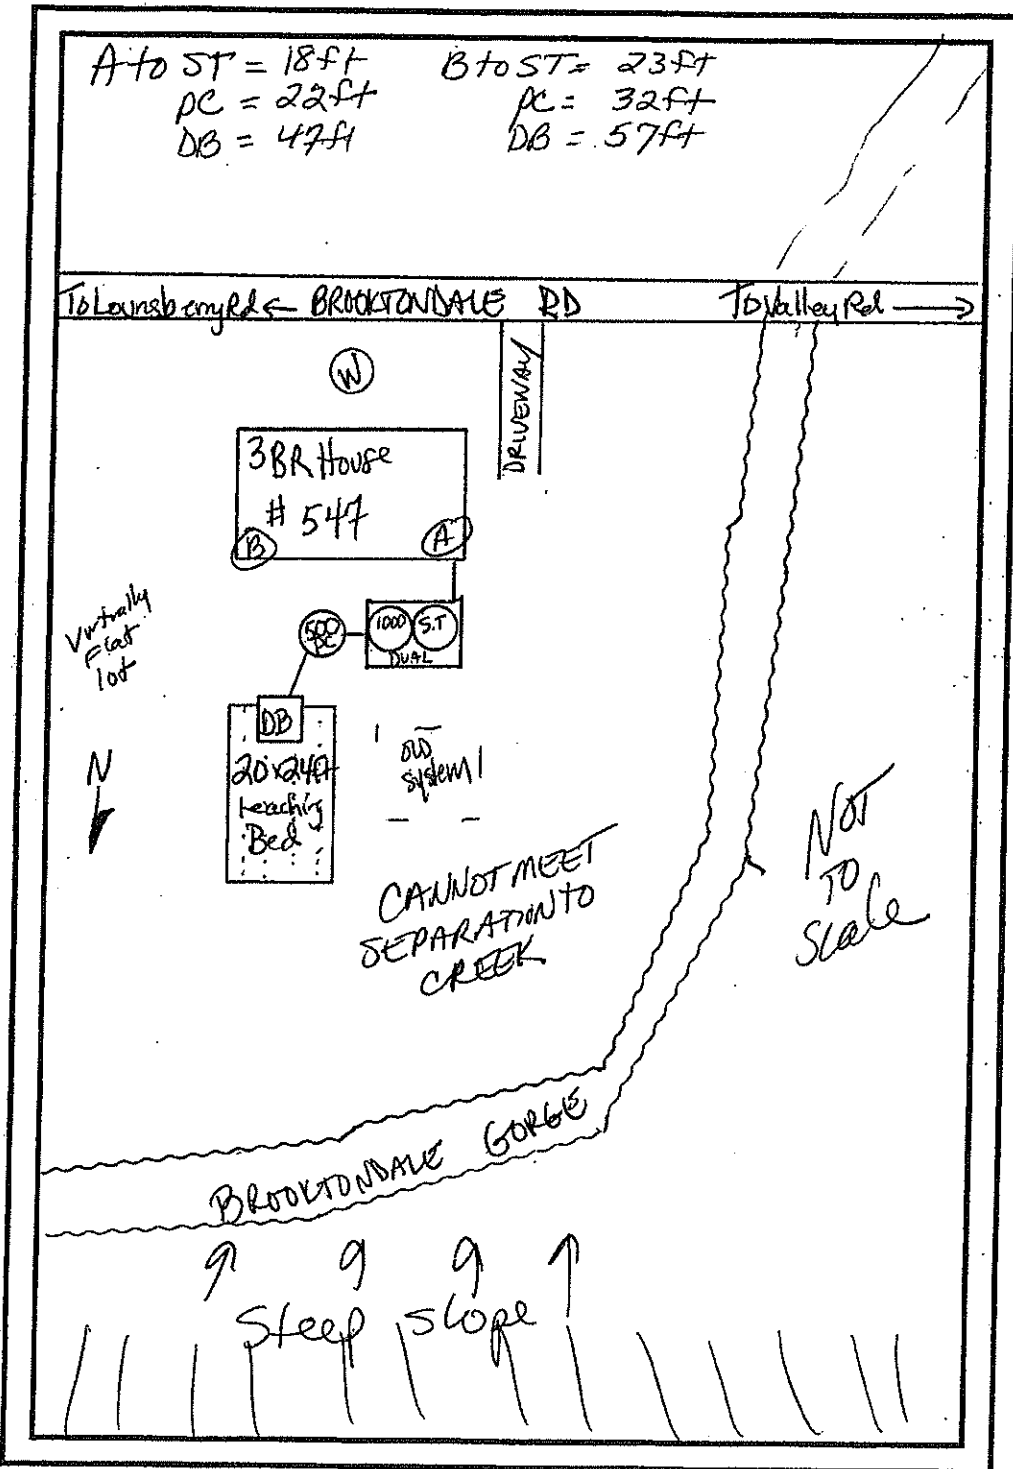 A to ST = 18ft
PC = 22ft
DB = 47ft
B to ST = 23ft
PC = 32ft
DB = 57ft
To Lounsberry Rd ← BROOKTONDALE RD To Valley Rd →
W
DRIVEWAY
3BR House
# 547
B A
500
PC
1000 S.T
DUAL
Virtually
Flat
lot
DB
20x24ft
Leaching
Bed
OLD
System
N
NOT
TO
Scale
CANNOT MEET
SEPARATION TO
CREEK
BROOKTONDALE GORGE
Steep slope